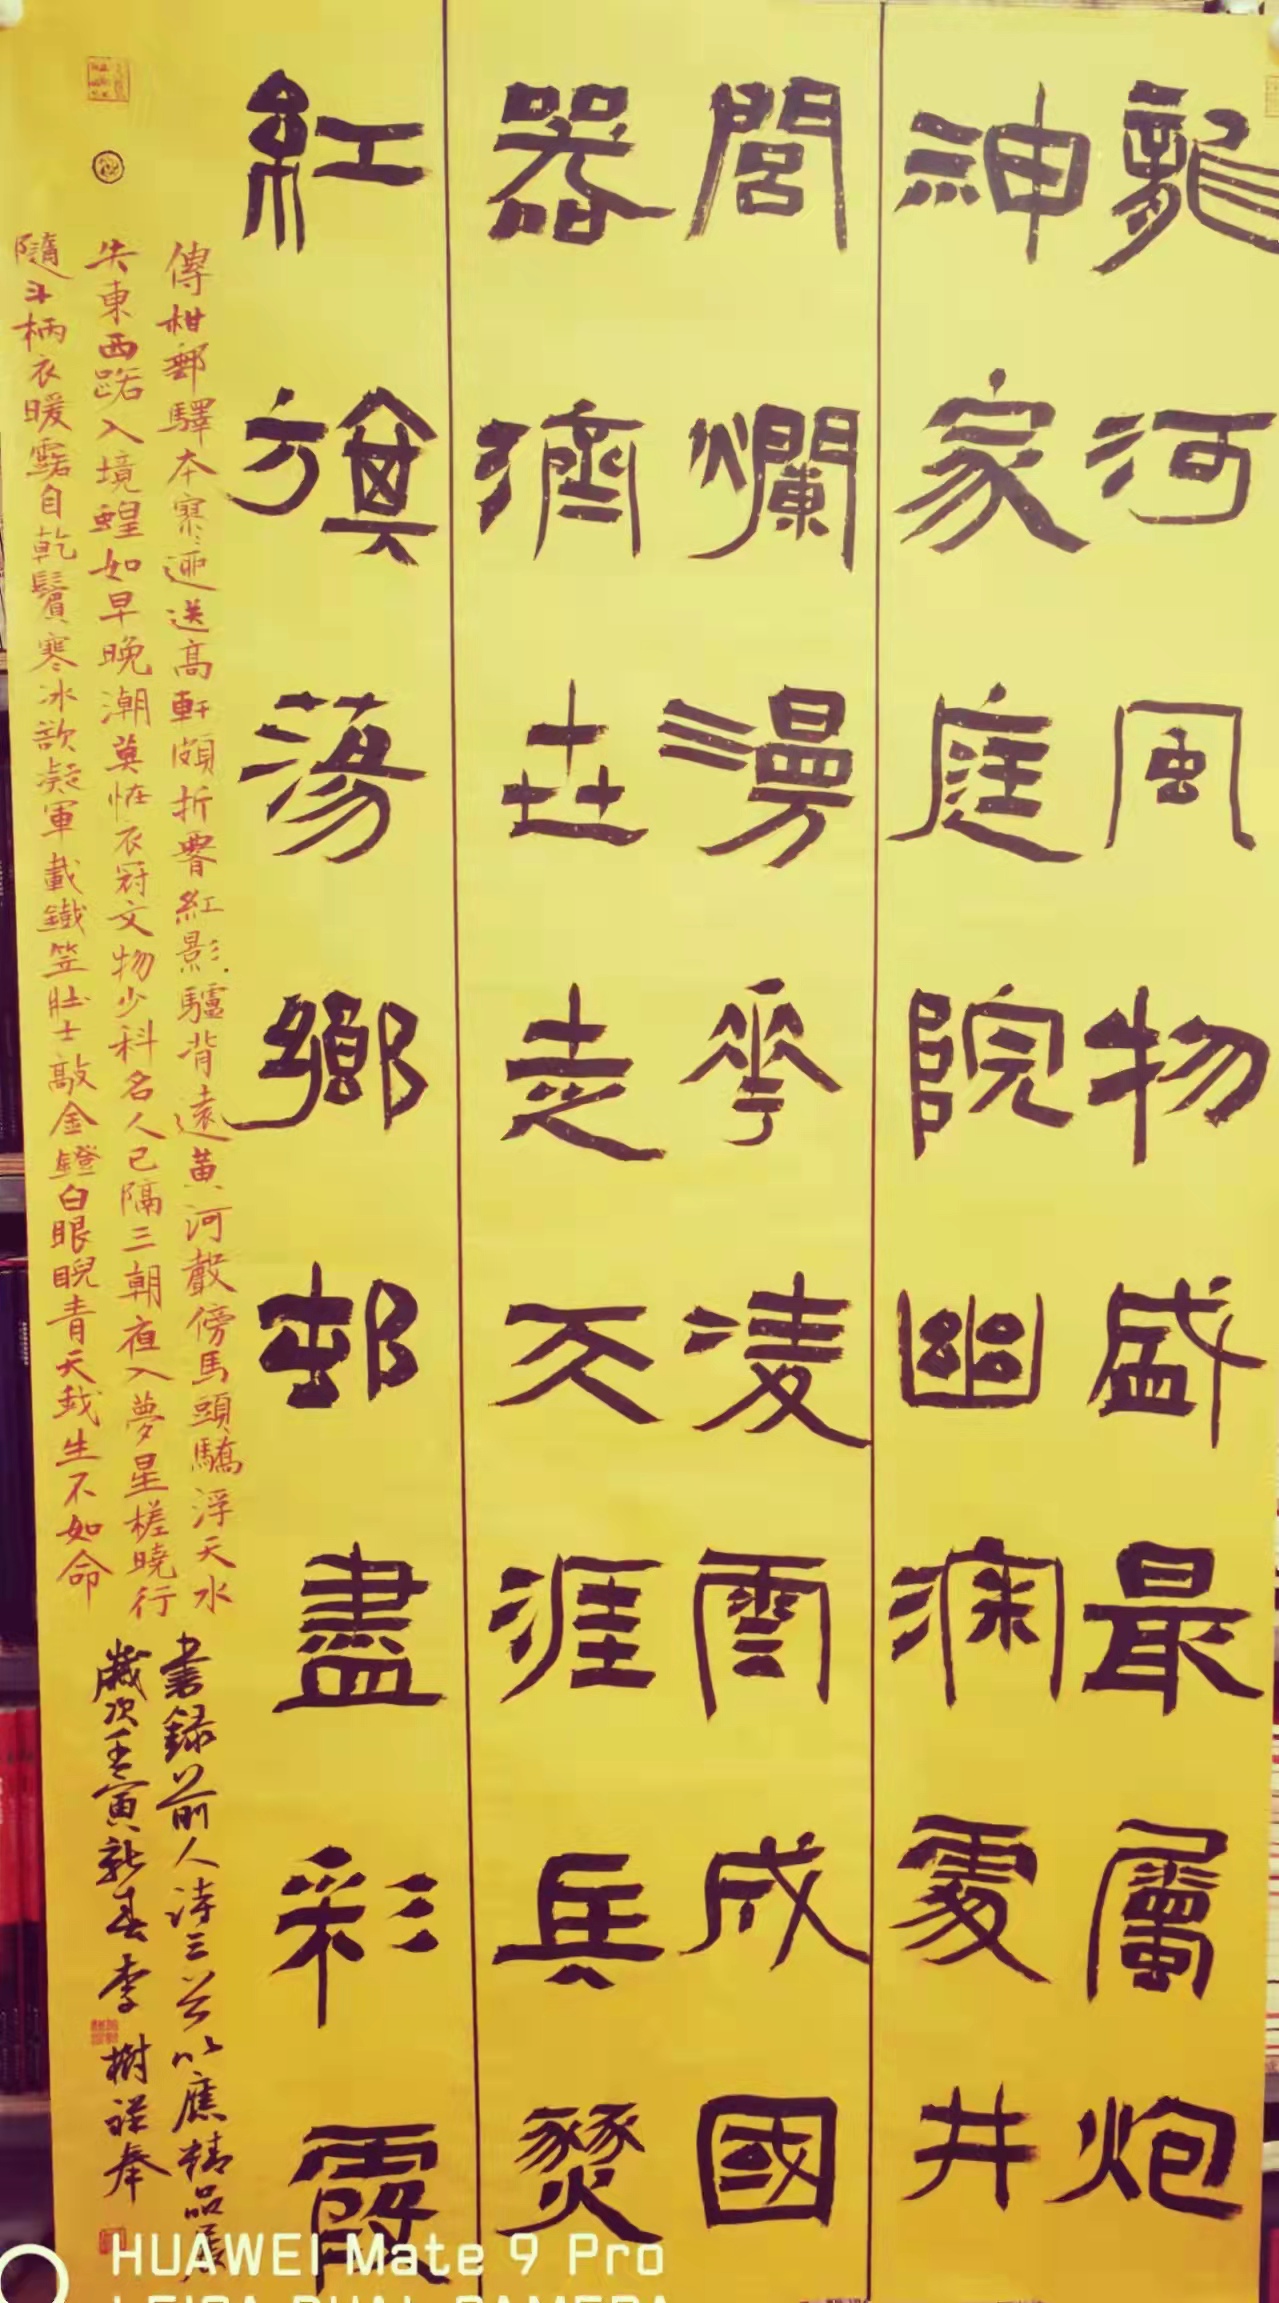 龍河風物盛最屬炮
神家庭院幽深處井
閭爛漫花凌雲成國
器濟世走天涯兵燹
紅旗蕩鄉邨盡彩霞
傳柑郵驛本寒迎送高軒頗折腰紅影驢背遠黃河聲傍馬頭驕浮天水
失東西路入境蝗如早晚潮莫怪衣冠文物少科名人已隔三朝夜入夢星槎曉行
隨斗柄衣暖露自乾鬢寒冰欲凝軍載鐵笠壯士敲金鐙白眼睨青天我生不如命
書錄前人詩三首以應精品展
歲次壬寅新春李樹祥奉
HUAWEI Mate 9 Pro
LEICA DUAL CAMERA